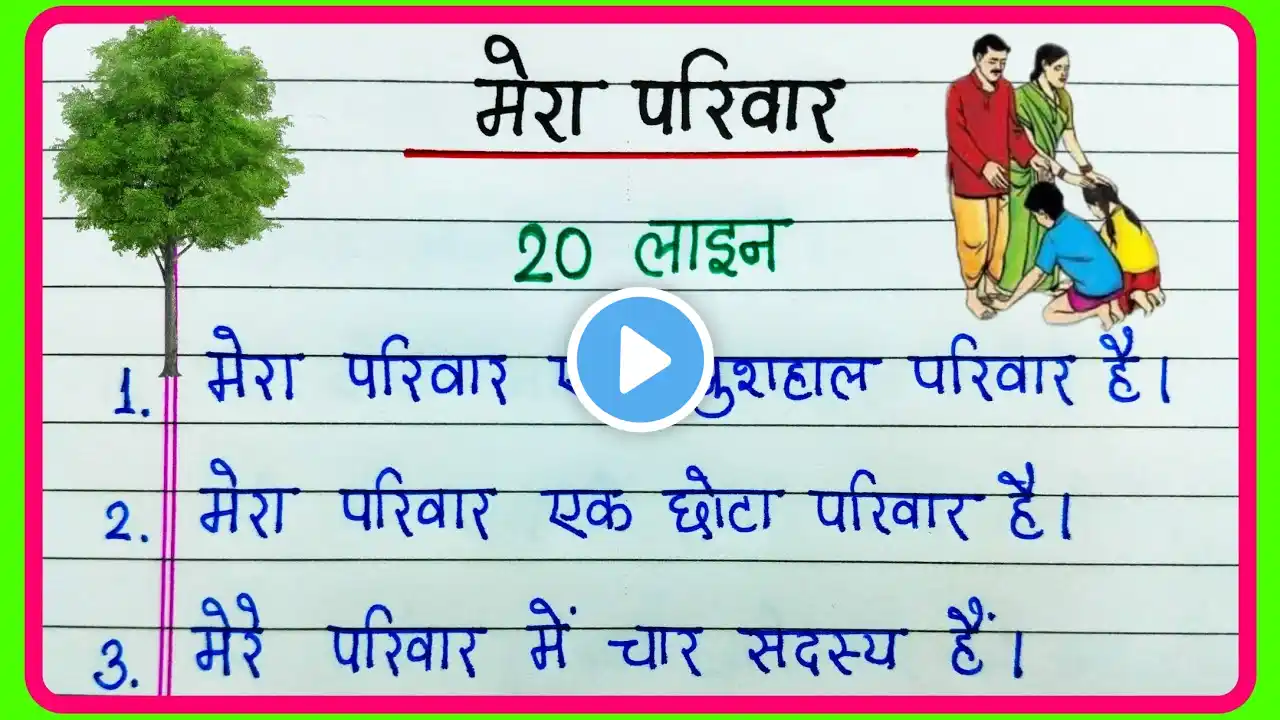 मेरा परिवार
20 लाइन
1. मेरा परिवार शहाल परिवार है।
2. मेरा परिवार एक छोटा परिवार है।
3. मेरे परिवार में चार सदस्य हैं।